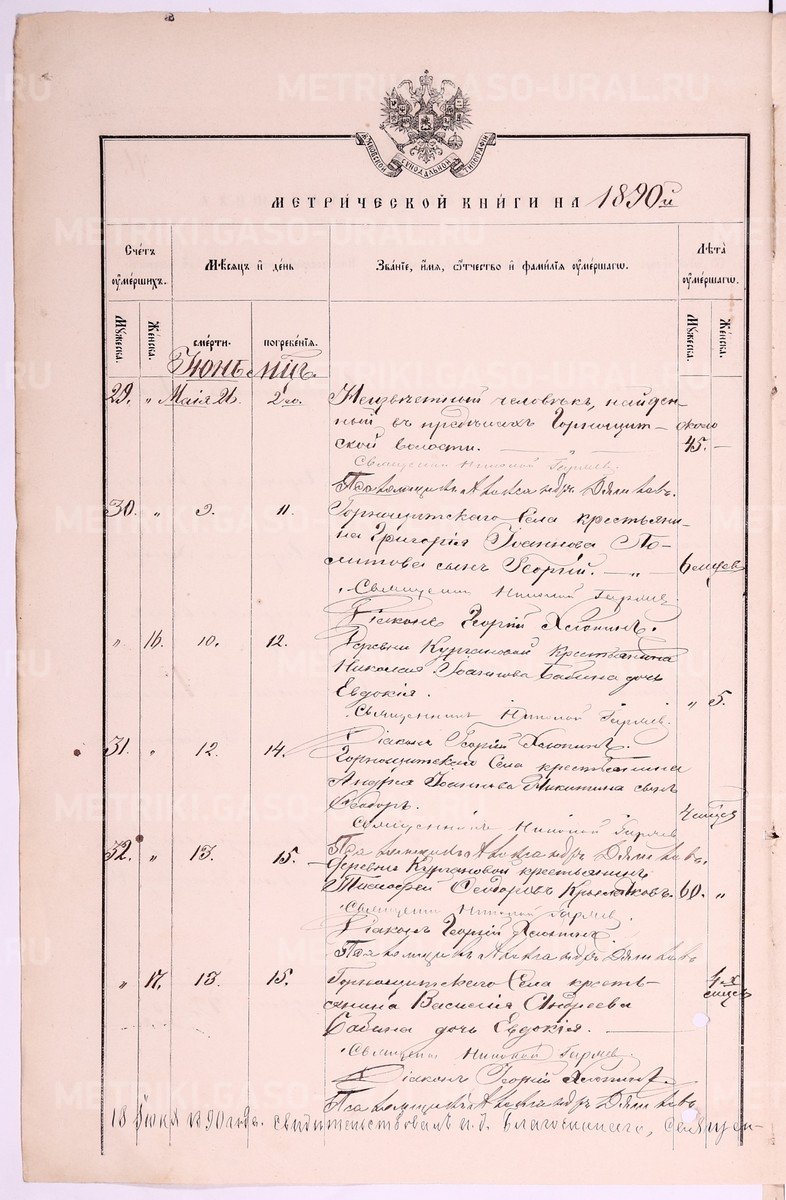 МОСКОВСКОЙ СѴНОДАЛЬНОЙ ТИПОГРАФІИ
МЕТРИЧЕСКОЙ КНИГИ НА 1890й
Счетъ умершихъ.
Мѣсяцъ и день
Званіе, имя, отчество и фамилія умершаго.
Лѣта умершаго.
Мужеска.
Женска.
смерти.
погребенія.
Мужеска.
Женска.
Іюнь мцъ.
29. „ Маія 26. 2го. Неизвѣстный человѣкъ, найден-
ный въ предѣлахъ Горнощит- около
ской волости. — „ — 45. —
Священникъ Николай Гаряев.
Псаломщикъ Александръ
30. „ 9. 11. Горнощитскаго Села крестьяни-
на Григорія Іоаннова По-
сынъ Георгій. — „ — 6 мцев
Священникъ Николай Гаряев.
Діаконъ Георгій Хлопинъ.
„ 16. 10. 12. Деревни Кургановой крестьянина
Николая Іоаннова Бабина дочь
Евдокія. „ 5.
Священникъ Николай Гаряев.
Діаконъ Георгій Хлопинъ.
31. „ 12. 14. Горнощитскаго Села крестьянина
Андрея Іоаннова Никитина сынъ
Ѳеодоръ. 4 мцев
Священникъ Николай Гаряев
Псаломщикъ Александръ
32. „ 13. 15. Деревни Кургановой крестьянинъ
Тимофей Ѳеодоровъ 60. „
Священникъ Николай Гаряев.
Діаконъ Георгій Хлопинъ
Псаломщикъ Александръ
„ 17. 13. 15. Горнощитскаго Села кресть- 4х
янина Василія Андреева мцев
Бабина дочь Евдокія. —
Священникъ Николай Гаряев.
Діаконъ Георгій Хлопинъ.
Псаломщикъ Александръ
18 Іюня 1890 года. свидѣтельствовалъ и. д. благочиннаго, священ-
METRIKI.GASO-URAL.RU